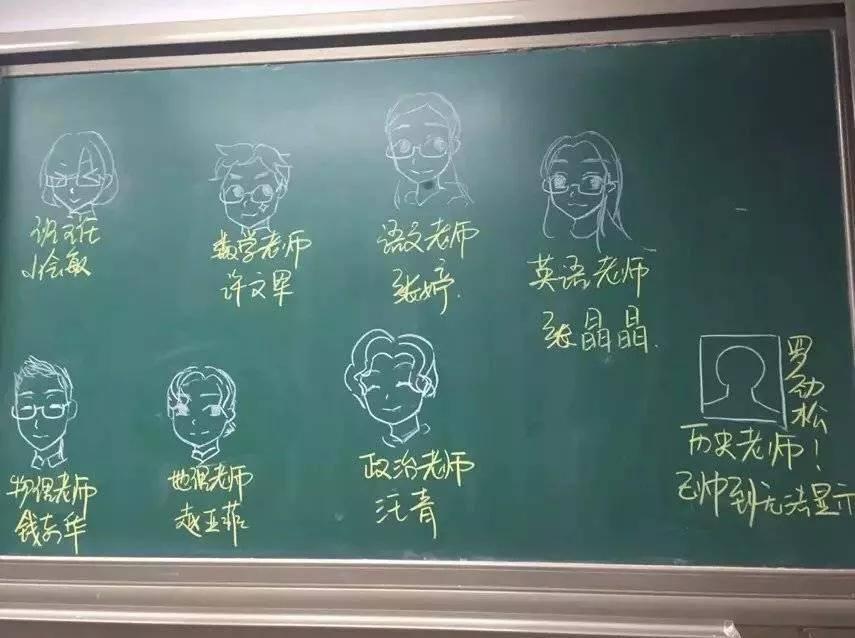 班主任
数学老师
许文军
语文老师
张婷.
英语老师
张晶晶.
物理老师
地理老师
赵亚菲
政治老师
汪青
罗劲松
历史老师！
已帅到无法显示